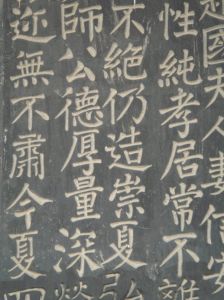 國夫人
性純孝居常不離
不絕仍造崇夏
師公德厚量深
迩無不肅今夏四